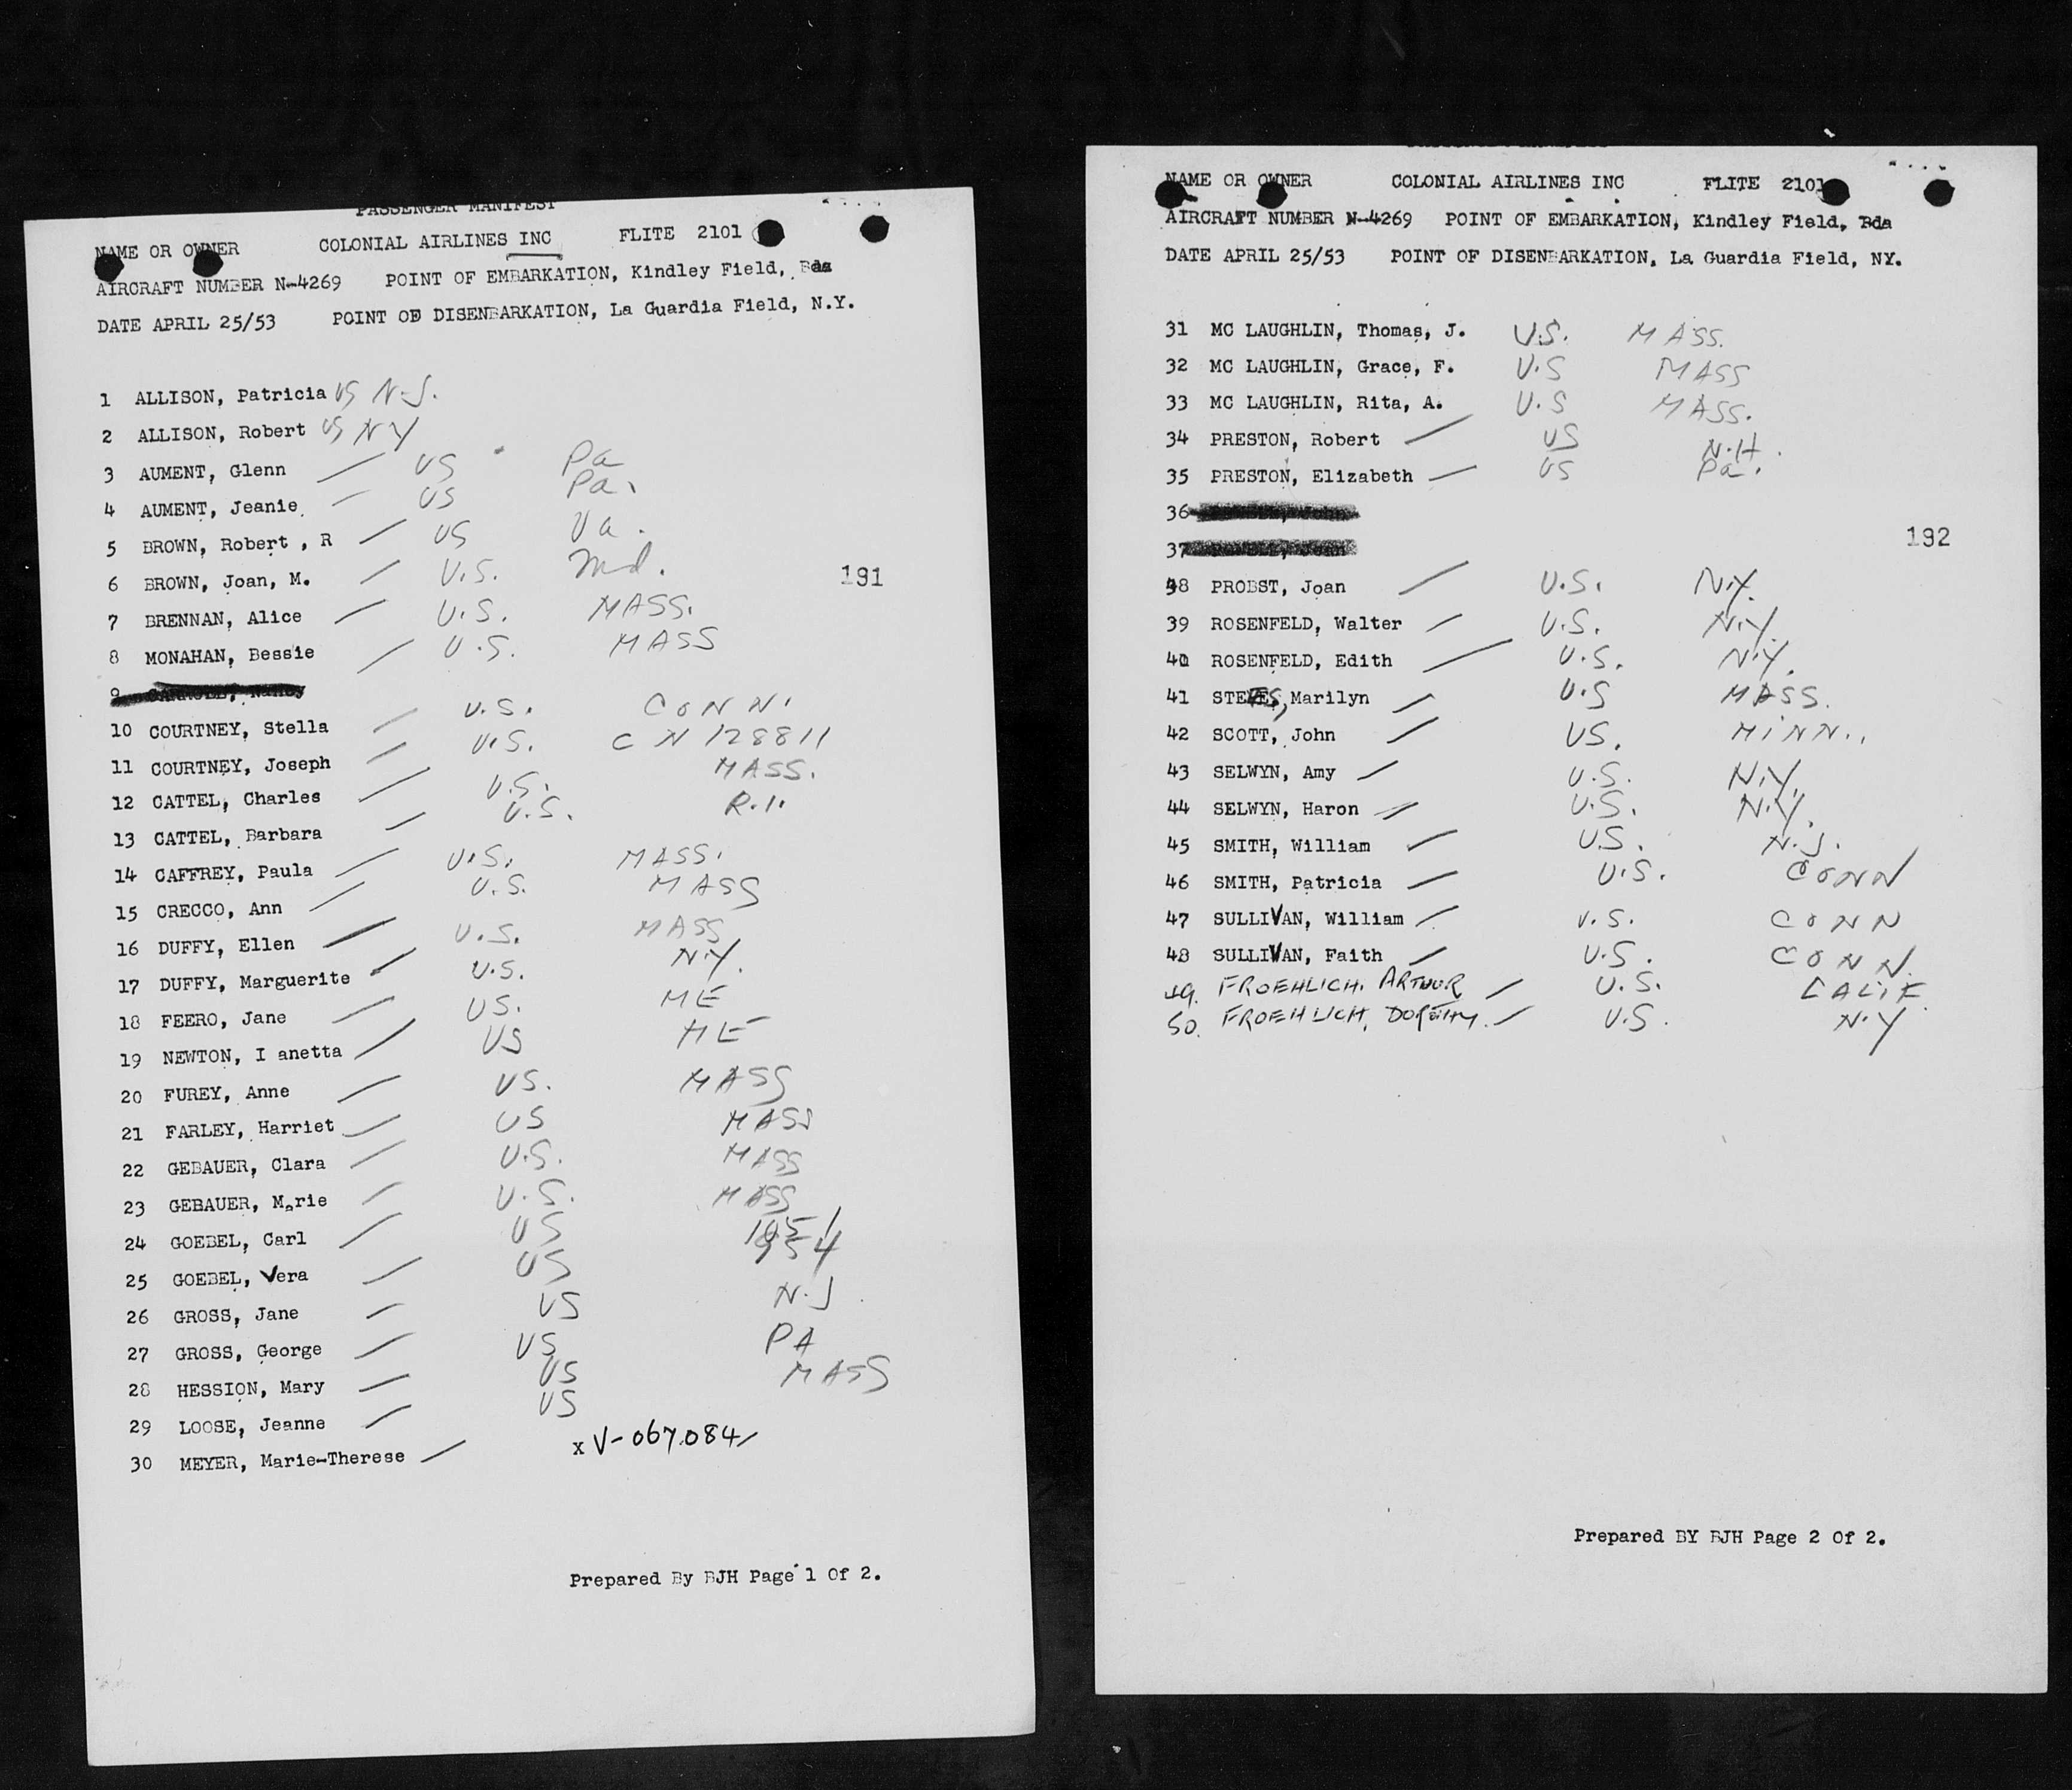 PASSENGER MANIFEST
NAME OR OWNER COLONIAL AIRLINES INC FLITE 2101
AIRCRAFT NUMBER N-4269 POINT OF EMBARKATION, Kindley Field, Bda
DATE APRIL 25/53 POINT OF DISENBARKATION, La Guardia Field, N.Y.
1 ALLISON, Patricia US N.J.
2 ALLISON, Robert US NY
3 AUMENT, Glenn US Pa
4 AUMENT, Jeanie US Pa.
5 BROWN, Robert , R US Va.
6 BROWN, Joan, M. U.S. Md.
191
7 BRENNAN, Alice U.S. MASS.
8 MONAHAN, Bessie U.S. MASS
9 Nancy
10 COURTNEY, Stella U.S. CONN.
11 COURTNEY, Joseph U.S. CN 128811
12 CATTEL, Charles U.S. MASS.
13 CATTEL, Barbara U.S. R.I.
14 CAFFREY, Paula U.S. MASS.
15 CRECCO, Ann U.S. MASS
16 DUFFY, Ellen U.S. MASS
17 DUFFY, Marguerite U.S. N.Y.
18 FEERO, Jane US. ME
19 NEWTON, I anetta US ME
20 FUREY, Anne US. MASS
21 FARLEY, Harriet US MASS
22 GEBAUER, Clara U.S. MASS
23 GEBAUER, Marie U.S. MASS
24 GOEBEL, Carl US
25 GOEBEL, Vera US 1954
26 GROSS, Jane US N.J.
27 GROSS, George US PA
28 HESSION, Mary US MASS
29 LOOSE, Jeanne US
30 MEYER, Marie-Therese x V-067.084
Prepared By BJH Page 1 Of 2.
NAME OR OWNER COLONIAL AIRLINES INC FLITE 2101
AIRCRAFT NUMBER N-4269 POINT OF EMBARKATION, Kindley Field, Bda
DATE APRIL 25/53 POINT OF DISENBARKATION, La Guardia Field, NY.
31 MC LAUGHLIN, Thomas, J. U.S. MASS.
32 MC LAUGHLIN, Grace, F. U.S MASS
33 MC LAUGHLIN, Rita, A. U.S MASS.
34 PRESTON, Robert US N.H.
35 PRESTON, Elizabeth US Pa.
36 John
37 Jean
192
38 PROBST, Joan U.S. N.Y.
39 ROSENFELD, Walter U.S. N.Y.
40 ROSENFELD, Edith U.S. N.Y.
41 Marilyn U.S MASS.
42 SCOTT, John US. MINN.
43 SELWYN, Amy U.S. N.Y.
44 SELWYN, Haron U.S. N.Y.
45 SMITH, William U.S. N.J.
46 SMITH, Patricia U.S. CONN
47 SULLIVAN, William U.S. CONN
48 SULLIVAN, Faith U.S. CONN.
49. FROEHLICH, ARTHUR U.S. CALIF.
50. FROEHLICH, DOROTHY. U.S. N.Y
Prepared BY BJH Page 2 Of 2.